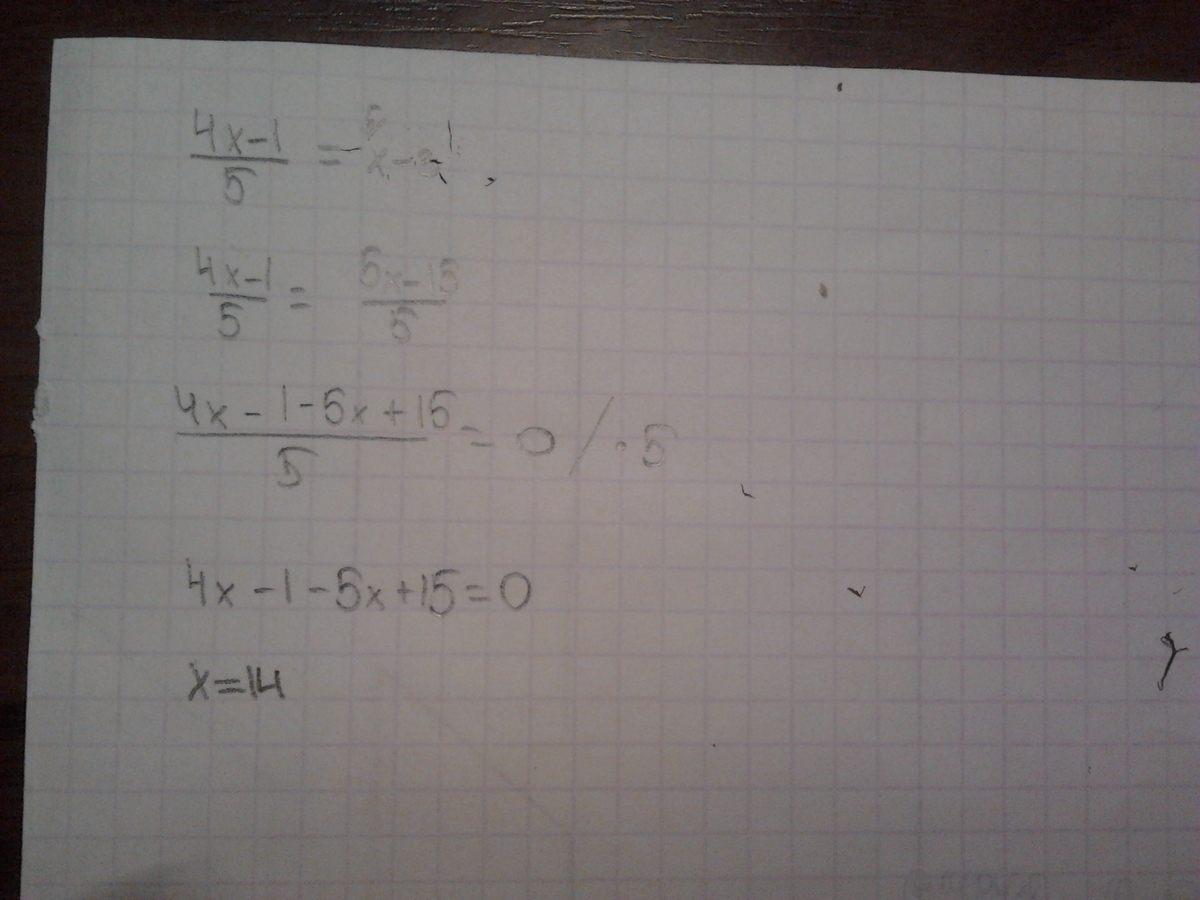 4x-1/5 = x-3
4x-1/5 = 5x-15/5
4x-1-5x+15/5 = 0 /·5
4x-1-5x+15=0
x=14